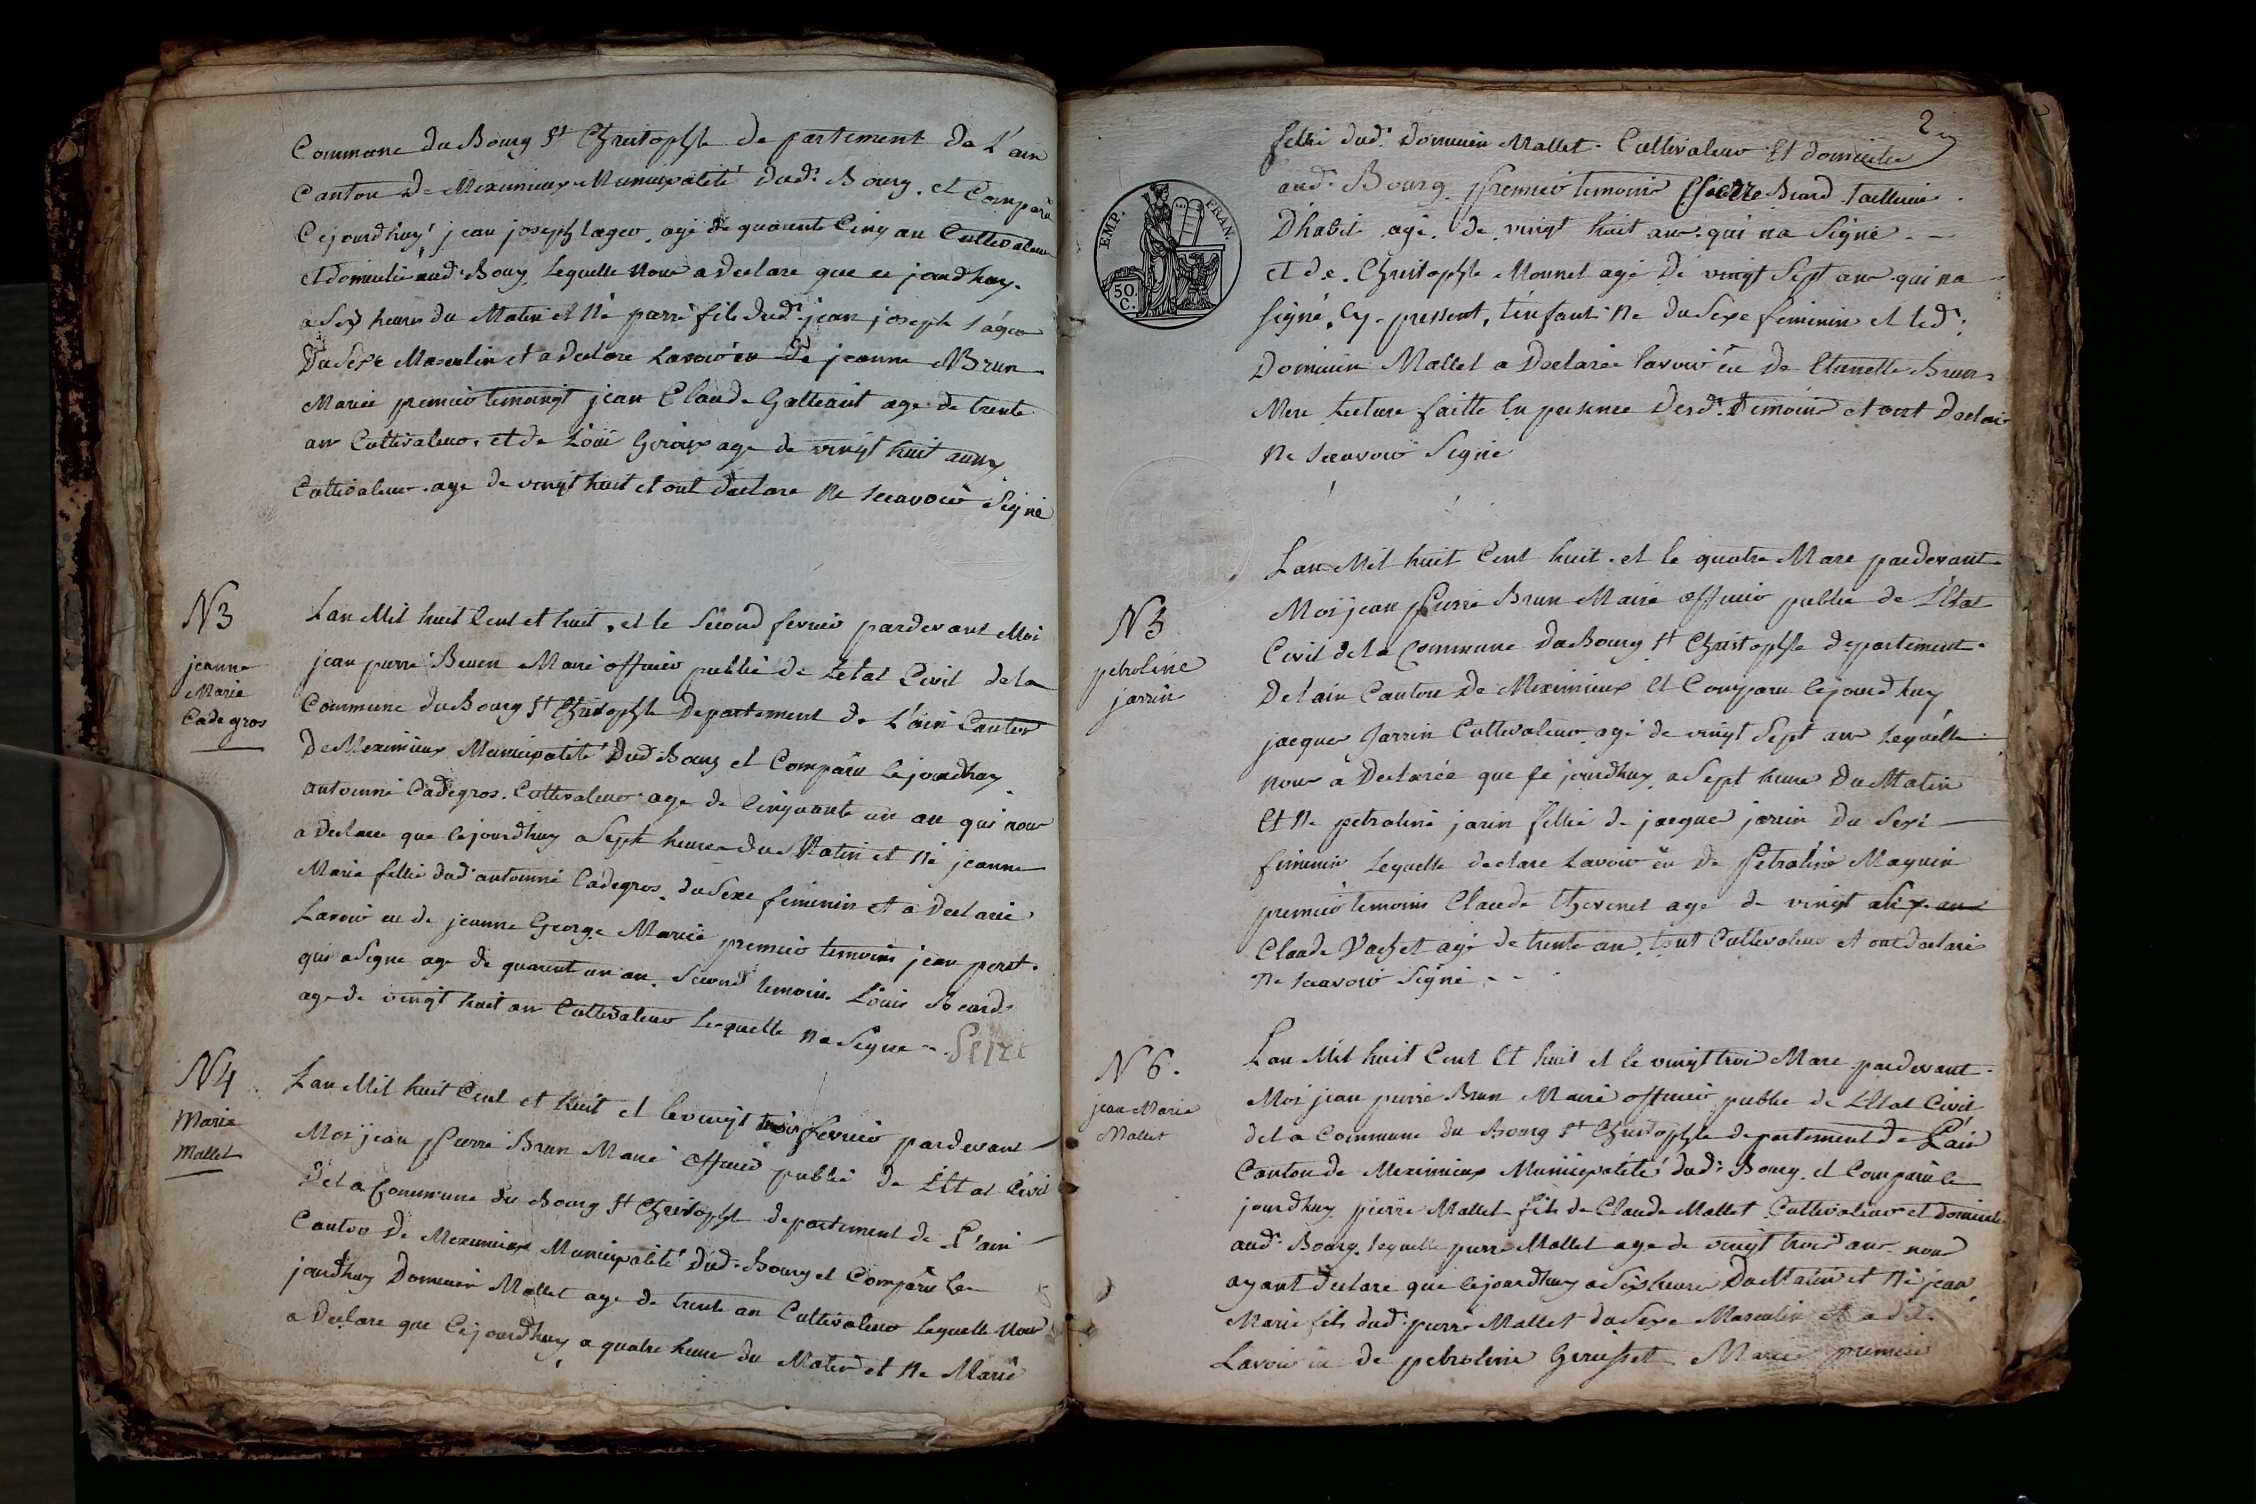 Commune du Bourg St Christophle de partement de L'ain
Canton de Meximieux Municipalité dudt Bourg. et Comparu
Cejourdhuy jean joseph lager agé de quarente Cinq an Cultivateur
et domicilié audt Bourg Lequelle nous a declare que ce jourdhuy.
a Six heures du Matin et Né pierre fils dudt jean joseph lager
Du Sexe Masculin et a declare Lavoir eu De jeanne Brun
Mariée premier temoingt jean Claude age de trente
an Cultivateur, et de Loüi age de vingt huit
Cultivateur age de vingt huit et ont declare Ne scavoir Signé
N3
jeanne
Marie
Cadegros
Lan Mil huit Cent et huit, et le Second fevrier pardevant Moi
jean pierre Brun Maire officier public de Letat Civil de la
Commune du Bourg St Christophle Departement de L'ain Canton
De Meximieux Municipalité Dudt Bourg et Comparu Cejourdhuy
antoinne Cadegros. Cultivateur age de Cinquante un an qui nous
a Declare que cejourdhuy a Sept heures du Matin et Né jeanne
Marie fellie dudt antoinne Cadegros. du Sexe feminin et a Declarée
Lavoir eu de jeanne George Mariée premier temoins jean peret.
qui a Signe age de quarent un an. Second temoin. Louis Beard
age de vingt huit an Cultivateur Lequelle Na Signe
N4
Marie
Mallet
Lan Mil huit Cent et huit et le vingt trois fevrier pardevant
Moi jean pierre Brun Maire officier public de L'Etat Civil
De la Commune du Bourg St Christophle departement de L'ain
Canton De Meximieux Municipalité Dudt Bourg et Comparu Ce
jourdhuy Dominin Mallet age de trente an Cultivateur Lequelle Nous
a Declare que Cejourdhuy a quatre heure du Matin et Ne Marie
2
fellie dudt Dominin Mallet. Cultivateur Et domicilie
audt Bourg premier temoins pierre Beard tailleur
D'habit agé. de vingt huit ans. qui na Signé
et de. Christophle Monnet agé De vingt Sept ans qui na
signé, Cy present, lenfant Ne du Sexe feminin et ledt
Dominin Mallet a Declarée lavoir eu De Brun
Mere Lecture faitte En presence Desdt temoins et ont Declaré
Ne scavoir Signé
EMP. FRAN.
50.
C.
N5
petroline
jarrin
Lan Mil huit Cent huit. et le quatre Mars pardevant
Moi jean pierre Brun Maire officier public de L'Etat
Civil de la Commune du Bourg St Christophle departement
De lain Canton De Meximieux Et Comparu Cejourdhuy
jacque Jarrin Cultivateur agé de vingt Sept an Lequelle
nous a Declarée que ce jourdhuy a Sept heure Du Matin
Et Ne petroline jarin fellie de jacque jarrin Du Sexe
feminin Lequelle declare Lavoir eu De petroline Maguin
premier temoins Claude Thevenet age de vingt six an
Claude Vachet agé de trente an tout Cultivateur et ont declaré
Ne scavoir Signé
N6.
jean Marie
Mallet
Lan Mil huit Cent Et huit et le vingt trois Mars pardevant
Moi jean pierre Brun Maire officier public de L'Etat Civil
de la Commune du Bourg St Christophle departement de L'ain
Canton de Meximieux Municipalité dudt Bourg. et Comparu Ce
jourdhuy pierre Mallet fils de Claude Mallet Cultivateur et domicilié
audt Bourg. lequelle pierre Mallet age de vingt trois ans nous
ayant declare que Cejourdhuy a Six heure Du Matin et Né jean
Marie fils dudt pierre Mallet du Sexe Masculin et a dit
Lavoir eu de petroline Mariée premier